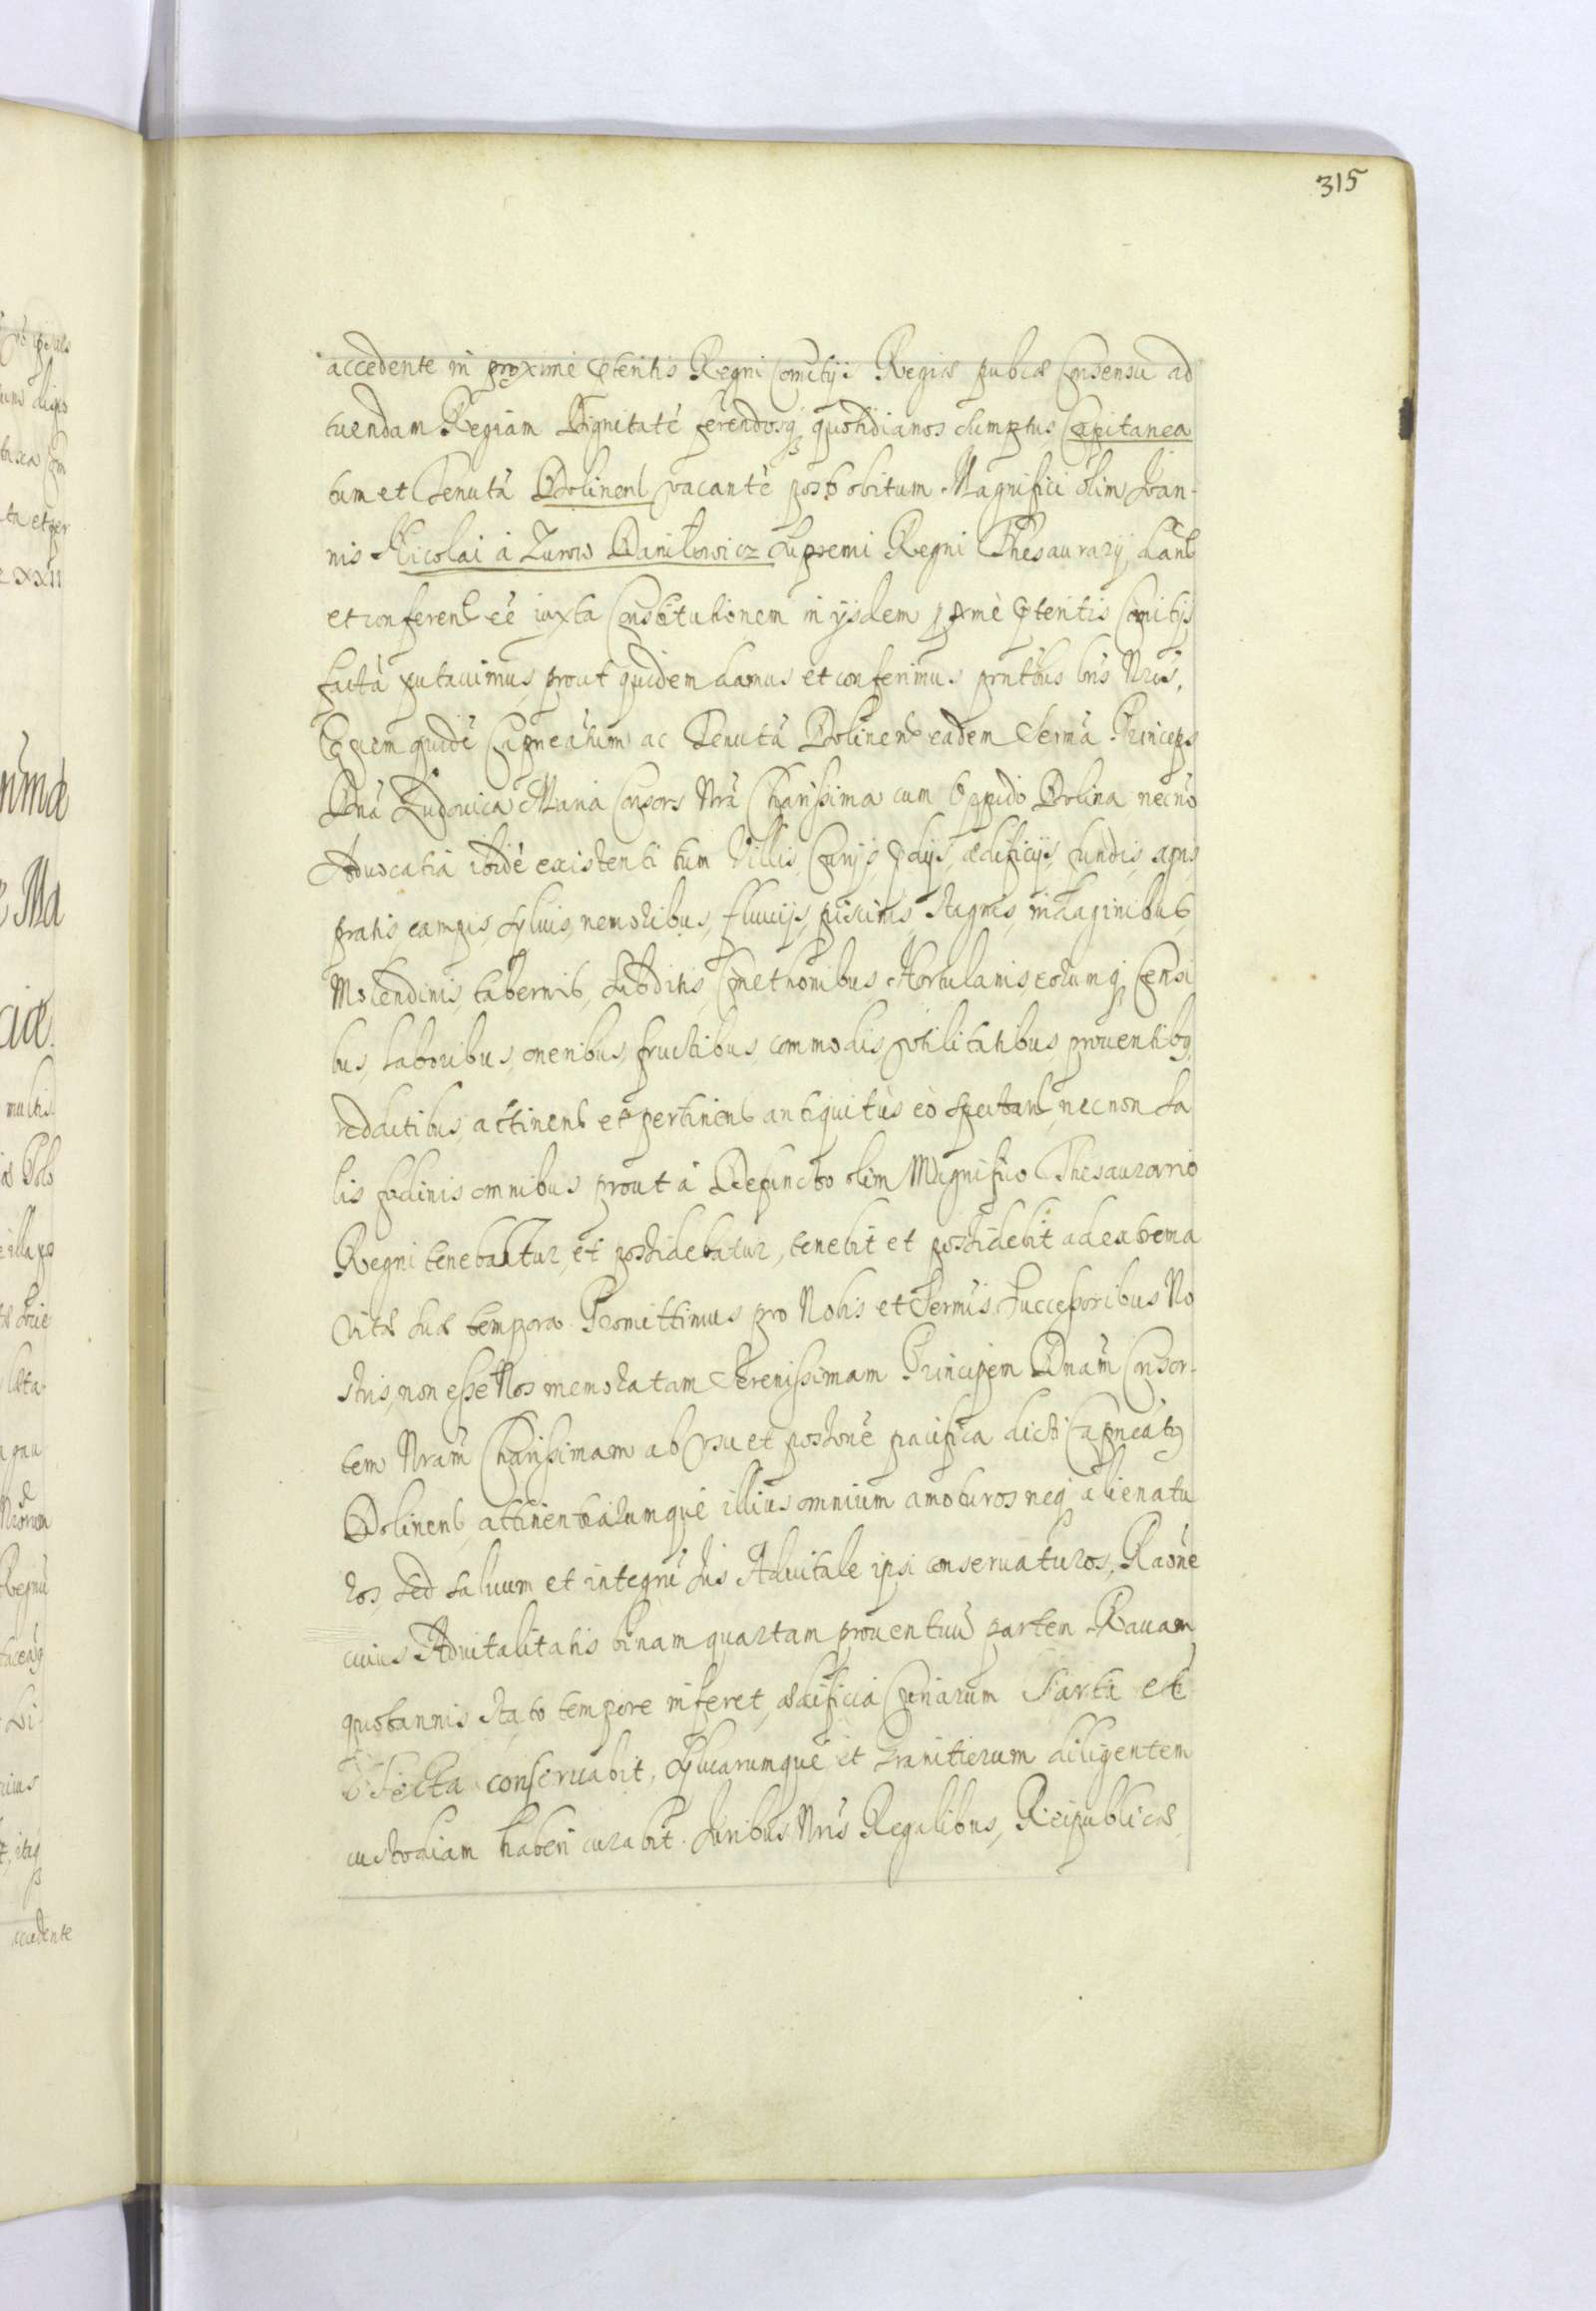 315
accedente in proxime pteritis Regni Comitijs Regiæ publcæ Consensu ad
tuendam Regiam Dignitatē ferendosq quotidianos Sumptus, Capitanea
tum et Tenutā Dolinens vacantē post obitum Magnifici olim Ioan-
nis Nicolai à Zurow Daniłowicz Supremi Regni Thesaurarij, dand
et conferend eē iuxta Constitutionem in ijsdem pxmè pteritis Comitijs
factā putauimus, prout quidem damus et conferimus prntibus lris Nris.
Quem quidē Capneatum ac Tenutā Dolinens eadem Serma Princeps
Dna Ludouica Maria Consors Nra Charissima cum Oppido Dolina necnō
Aduocatia ibidē existenti tum Villis, Curijs, pdijs, ædificijs, fundis, agris,
pratis, campis, syluis, nemoribus, fluuijs, piscinis, stagnis, indaginibus,
Molendinis, tabernis, Subditis, Cmethonibus Hortulanis, eorumq Censi
bus, Laboribus, oneribus, fructibus, commodis, vtilitatibus, prouentibq,
redditibus, attinens et pertinens antiquitùs eò spectans, necnon Sa
lis fodinis omnibus prout à Defuncto olim Magnifico Thesaurario
Regni tenebantur, et possidebatur, tenebit et possidebit ad extrema
vitæ suæ tempora. Promittimus pro Nobis et Sermis Successoribus No
stris, non esse Nos memoratam Serenissimam Principem Dnam Consor-
tem Nram Charissimam ab vsu et possone pacifica dicti Capneatq
Dolinens, attinentiarumque illius omnium amoturos neq alienatu
ros, Sed saluum et integrū Ius Aduitale ipsi conseruaturos, Raone
cuius Aduitalitatis binam quartam prouentuū partem Rauam
quotannis stato tempore inferet, ædificia Curiarum Sarta et
Tecta conseruabit, syluarumque et Granitierum diligentem
custodiam haberi curabit. Iuribus Nris Regalibus, Reipublicæ